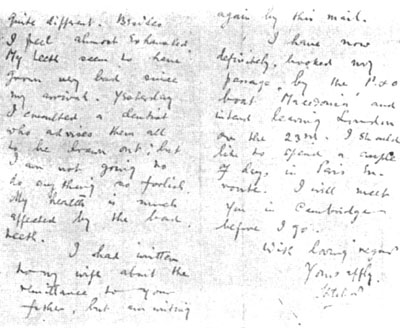 quite different. Besides
I feel almost exhausted.
My teeth seem to have
gone very bad since
my arrival. Yesterday
I consulted a dentist
who advises them all
to be drawn out; but
I am not going to
do anything so foolish.
My health is much
affected by the bad
teeth.
I had written
to my wife about the
remittance to your
father, but am writing
again by this mail.
I have now
definitely booked my
passage by the P & O
boat Macedonia and
intend leaving London
on the 23rd. I should
like to spend a couple
of days in Paris en-
route. I will meet
you in Cambridge
before I go.
With loving regards
Yours affly.